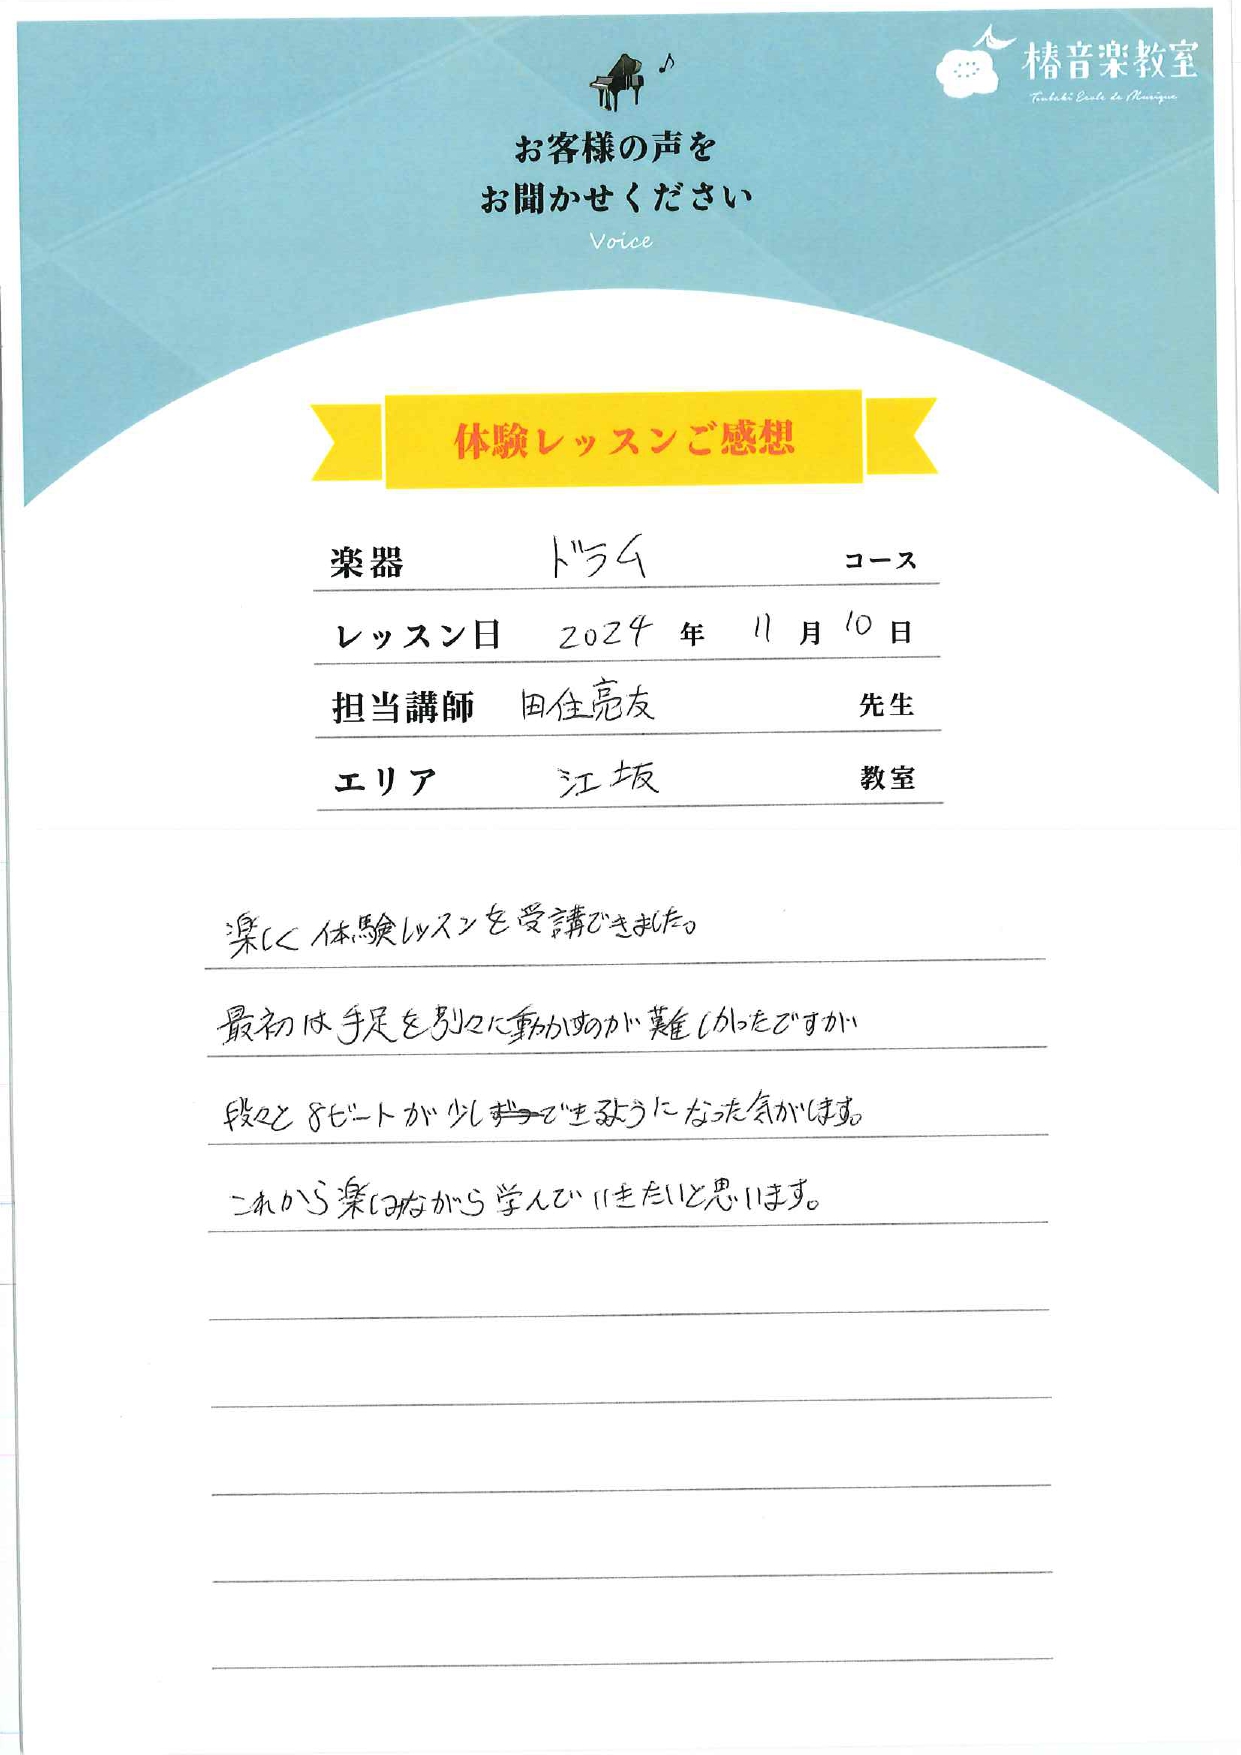 椿音楽教室
Tsubaki Ecole de Musique
お客様の声を
お聞かせください
Voice
体験レッスンご感想
楽器 ドラム コース
レッスン日 2024 年 11 月 10 日
担当講師 田住亮友 先生
エリア 江坂 教室
楽しく体験レッスンを受講できました。
最初は手足を別々に動かすのが難しかったですが
段々と8ビートが少しずつできるようになった気がします。
これから楽しみながら学んでいきたいと思います。